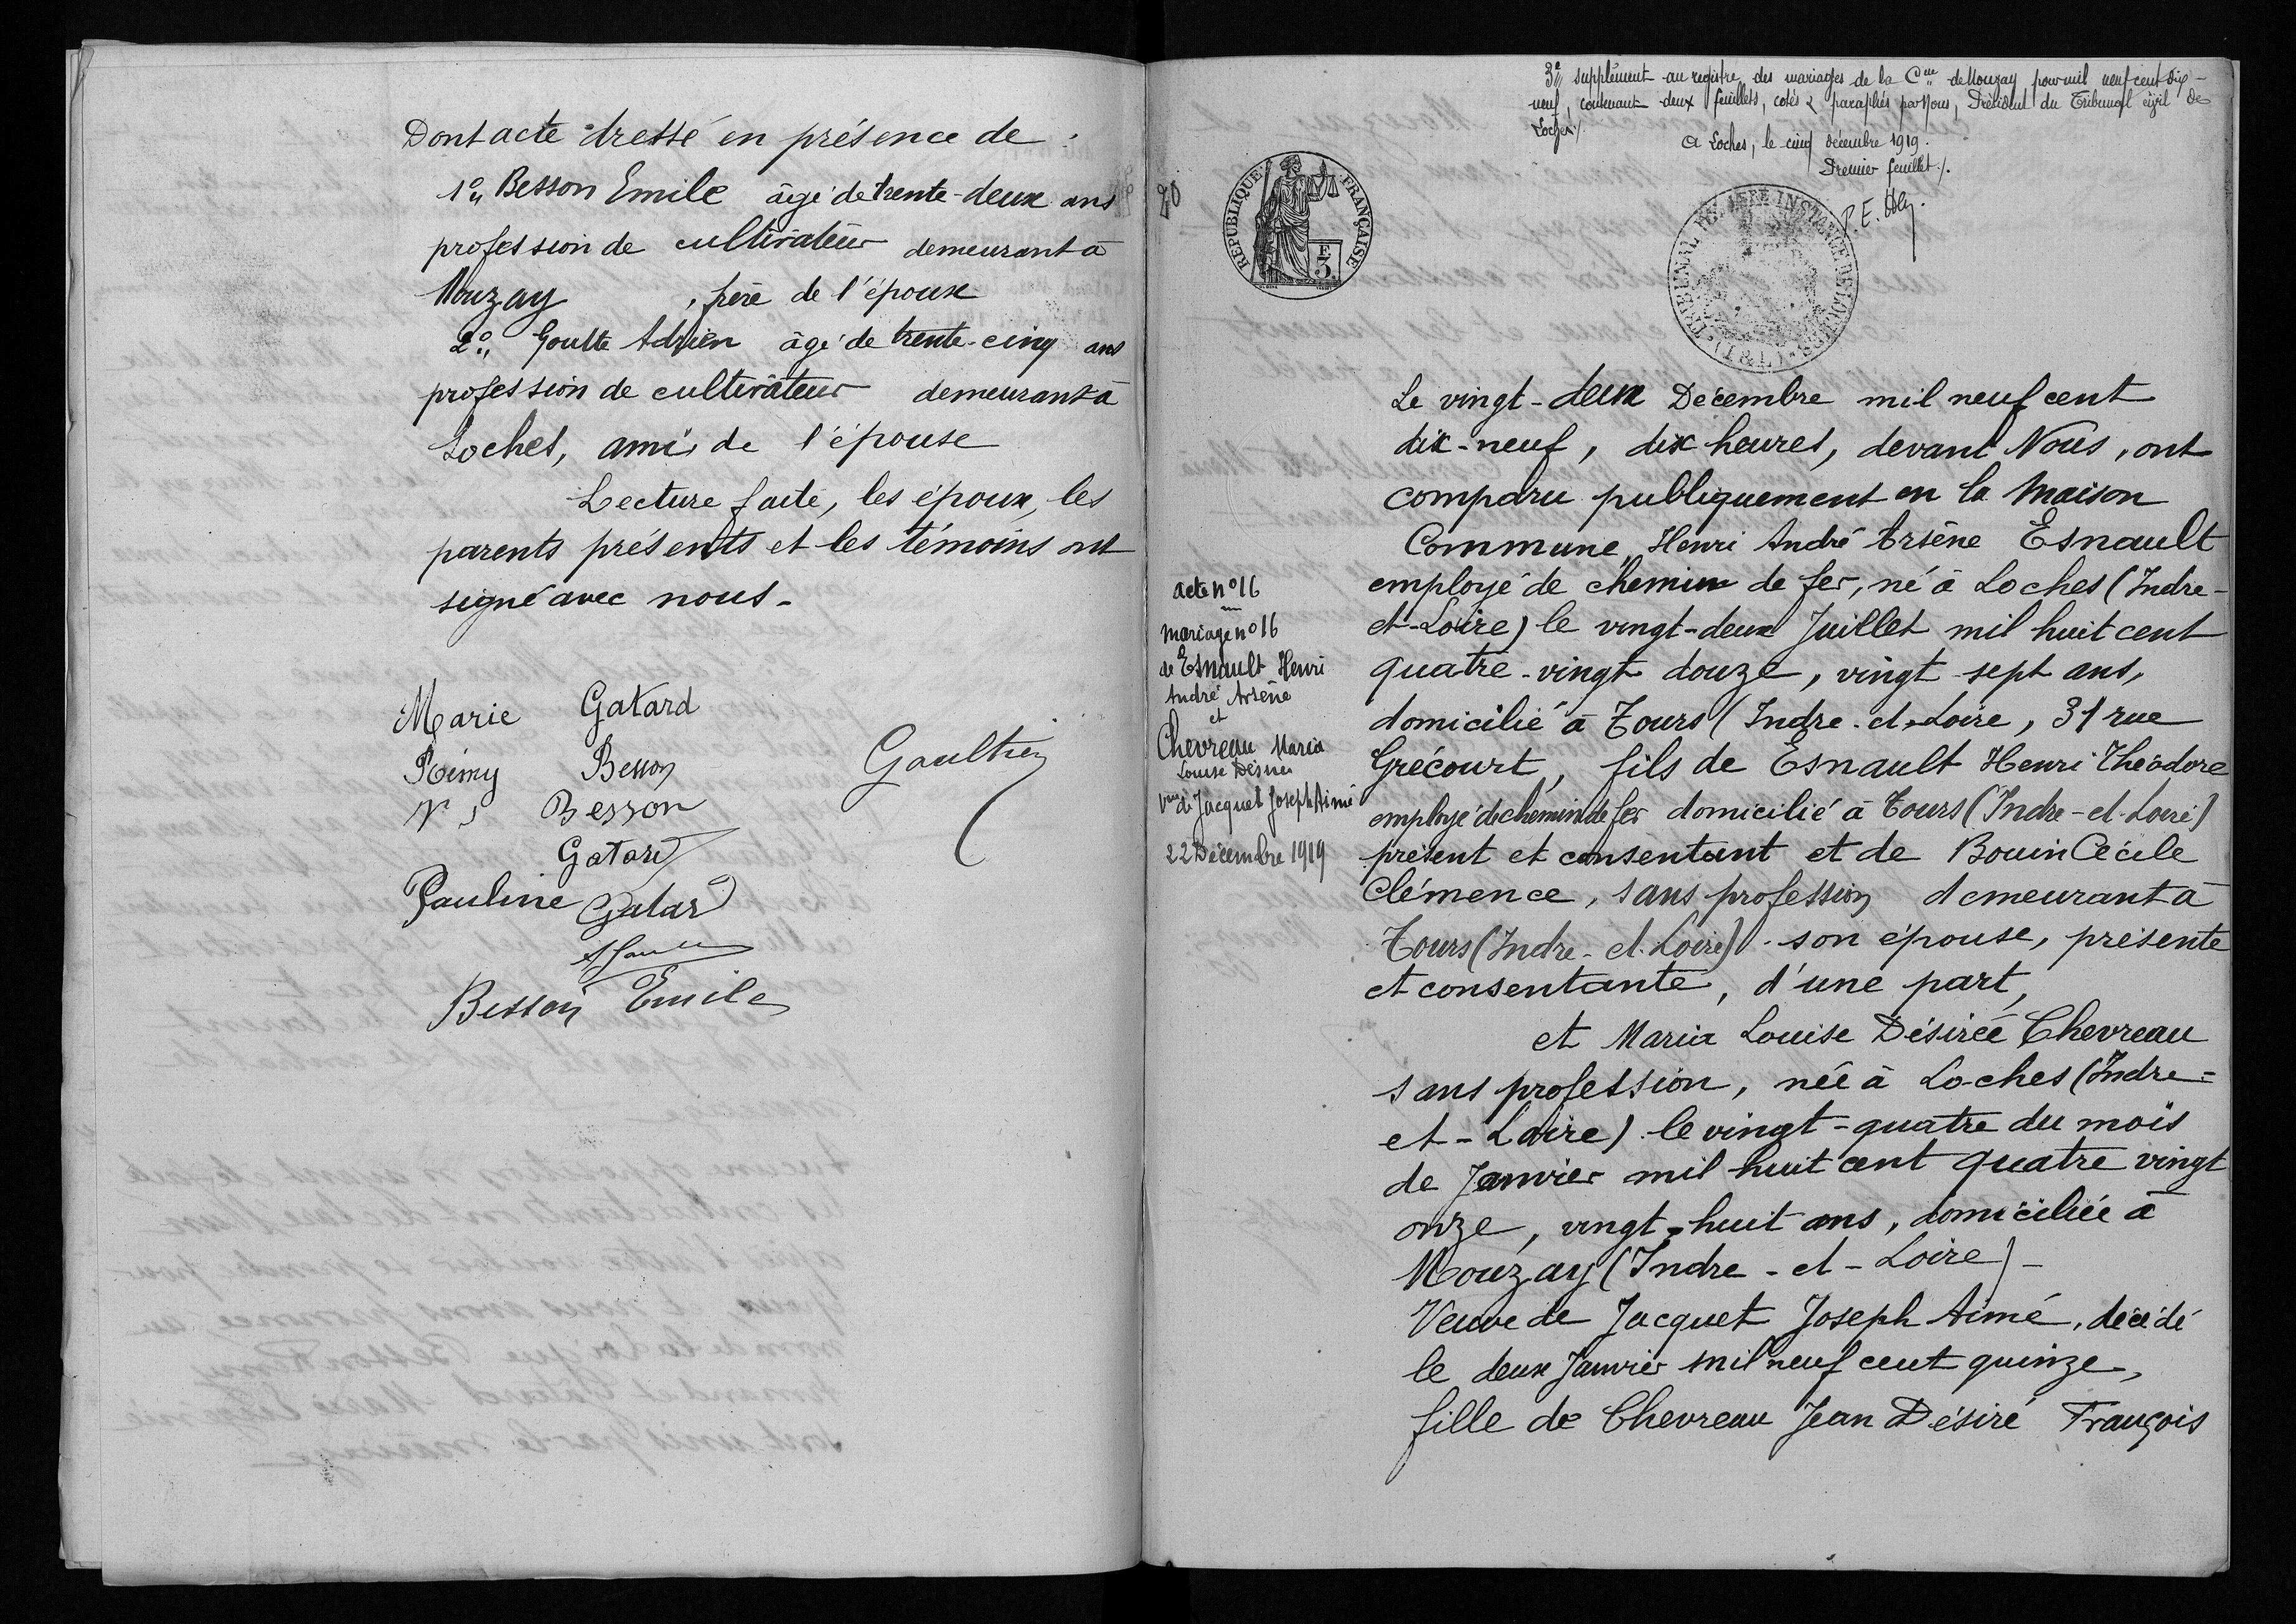 Dont acte dressé en présence de :
1o,, Besson Emile âgé de trente-deux ans
profession de cultivateur demeurant à
Mouzay, frère de l'époux
2o,, Goutte Adrien âgé de trente-cinq ans
profession de cultivateur demeurant à
Loches, ami de l'épouse
Lecture faite, les époux, les
parents présents et les témoins ont
signé avec nous.
Marie Gatard
Rémy Besson
Besson
Gaultier
Gatard
Pauline Gatard
Besson Emile
3e supplément au registre des mariages de la Cne de Mouzay pour mil neuf cent dix-
neuf, contenant deux feuillets, cotés & paraphés par Nous, Président du Tribunal civil de
Loches ./.
A Loches, le cinq décembre 1919.
Premier feuillet ./.
P.E.
20
REPUBLIQUE FRANÇAISE
F
3
TRIBUNAL DE 1ERE INSTANCE DE LOCHES
(I & L)
Le vingt-deux Décembre mil neuf cent
dix-neuf, dix heures, devant Nous, ont
comparu publiquement en la Maison
Commune, Henri André Arsène Esnault
employé de chemin de fer, né à Loches (Indre-
et-Loire) le vingt-deux Juillet mil huit cent
quatre-vingt douze, vingt-sept ans,
domicilié à Tours (Indre-et-Loire, 31 rue
Grécourt, fils de Esnault Henri Théodore
employé de chemin de fer domicilié à Tours (Indre-et-Loire)
présent et consentant et de Bouin Cécile
Clémence, sans profession demeurant à
Tours (Indre-et-Loire) son épouse, présente
et consentante, d'une part,
et Maria Louise Désirée Chevreau
sans profession, née à Loches (Indre-
et-Loire) le vingt-quatre du mois
de Janvier mil huit cent quatre vingt
onze, vingt-huit ans, domiciliée à
Mouzay (Indre-et-Loire)-
Veuve de Jacquet Joseph Aimé, décédé
le deux Janvier mil neuf cent quinze,
fille de Chevreau Jean Désiré François
acte no 16
mariage no 16
de Esnault Henri
André Arsène
et
Chevreau Maria
Louise Désirée
Vve de Jacquet Joseph Aimé
22 Décembre 1919